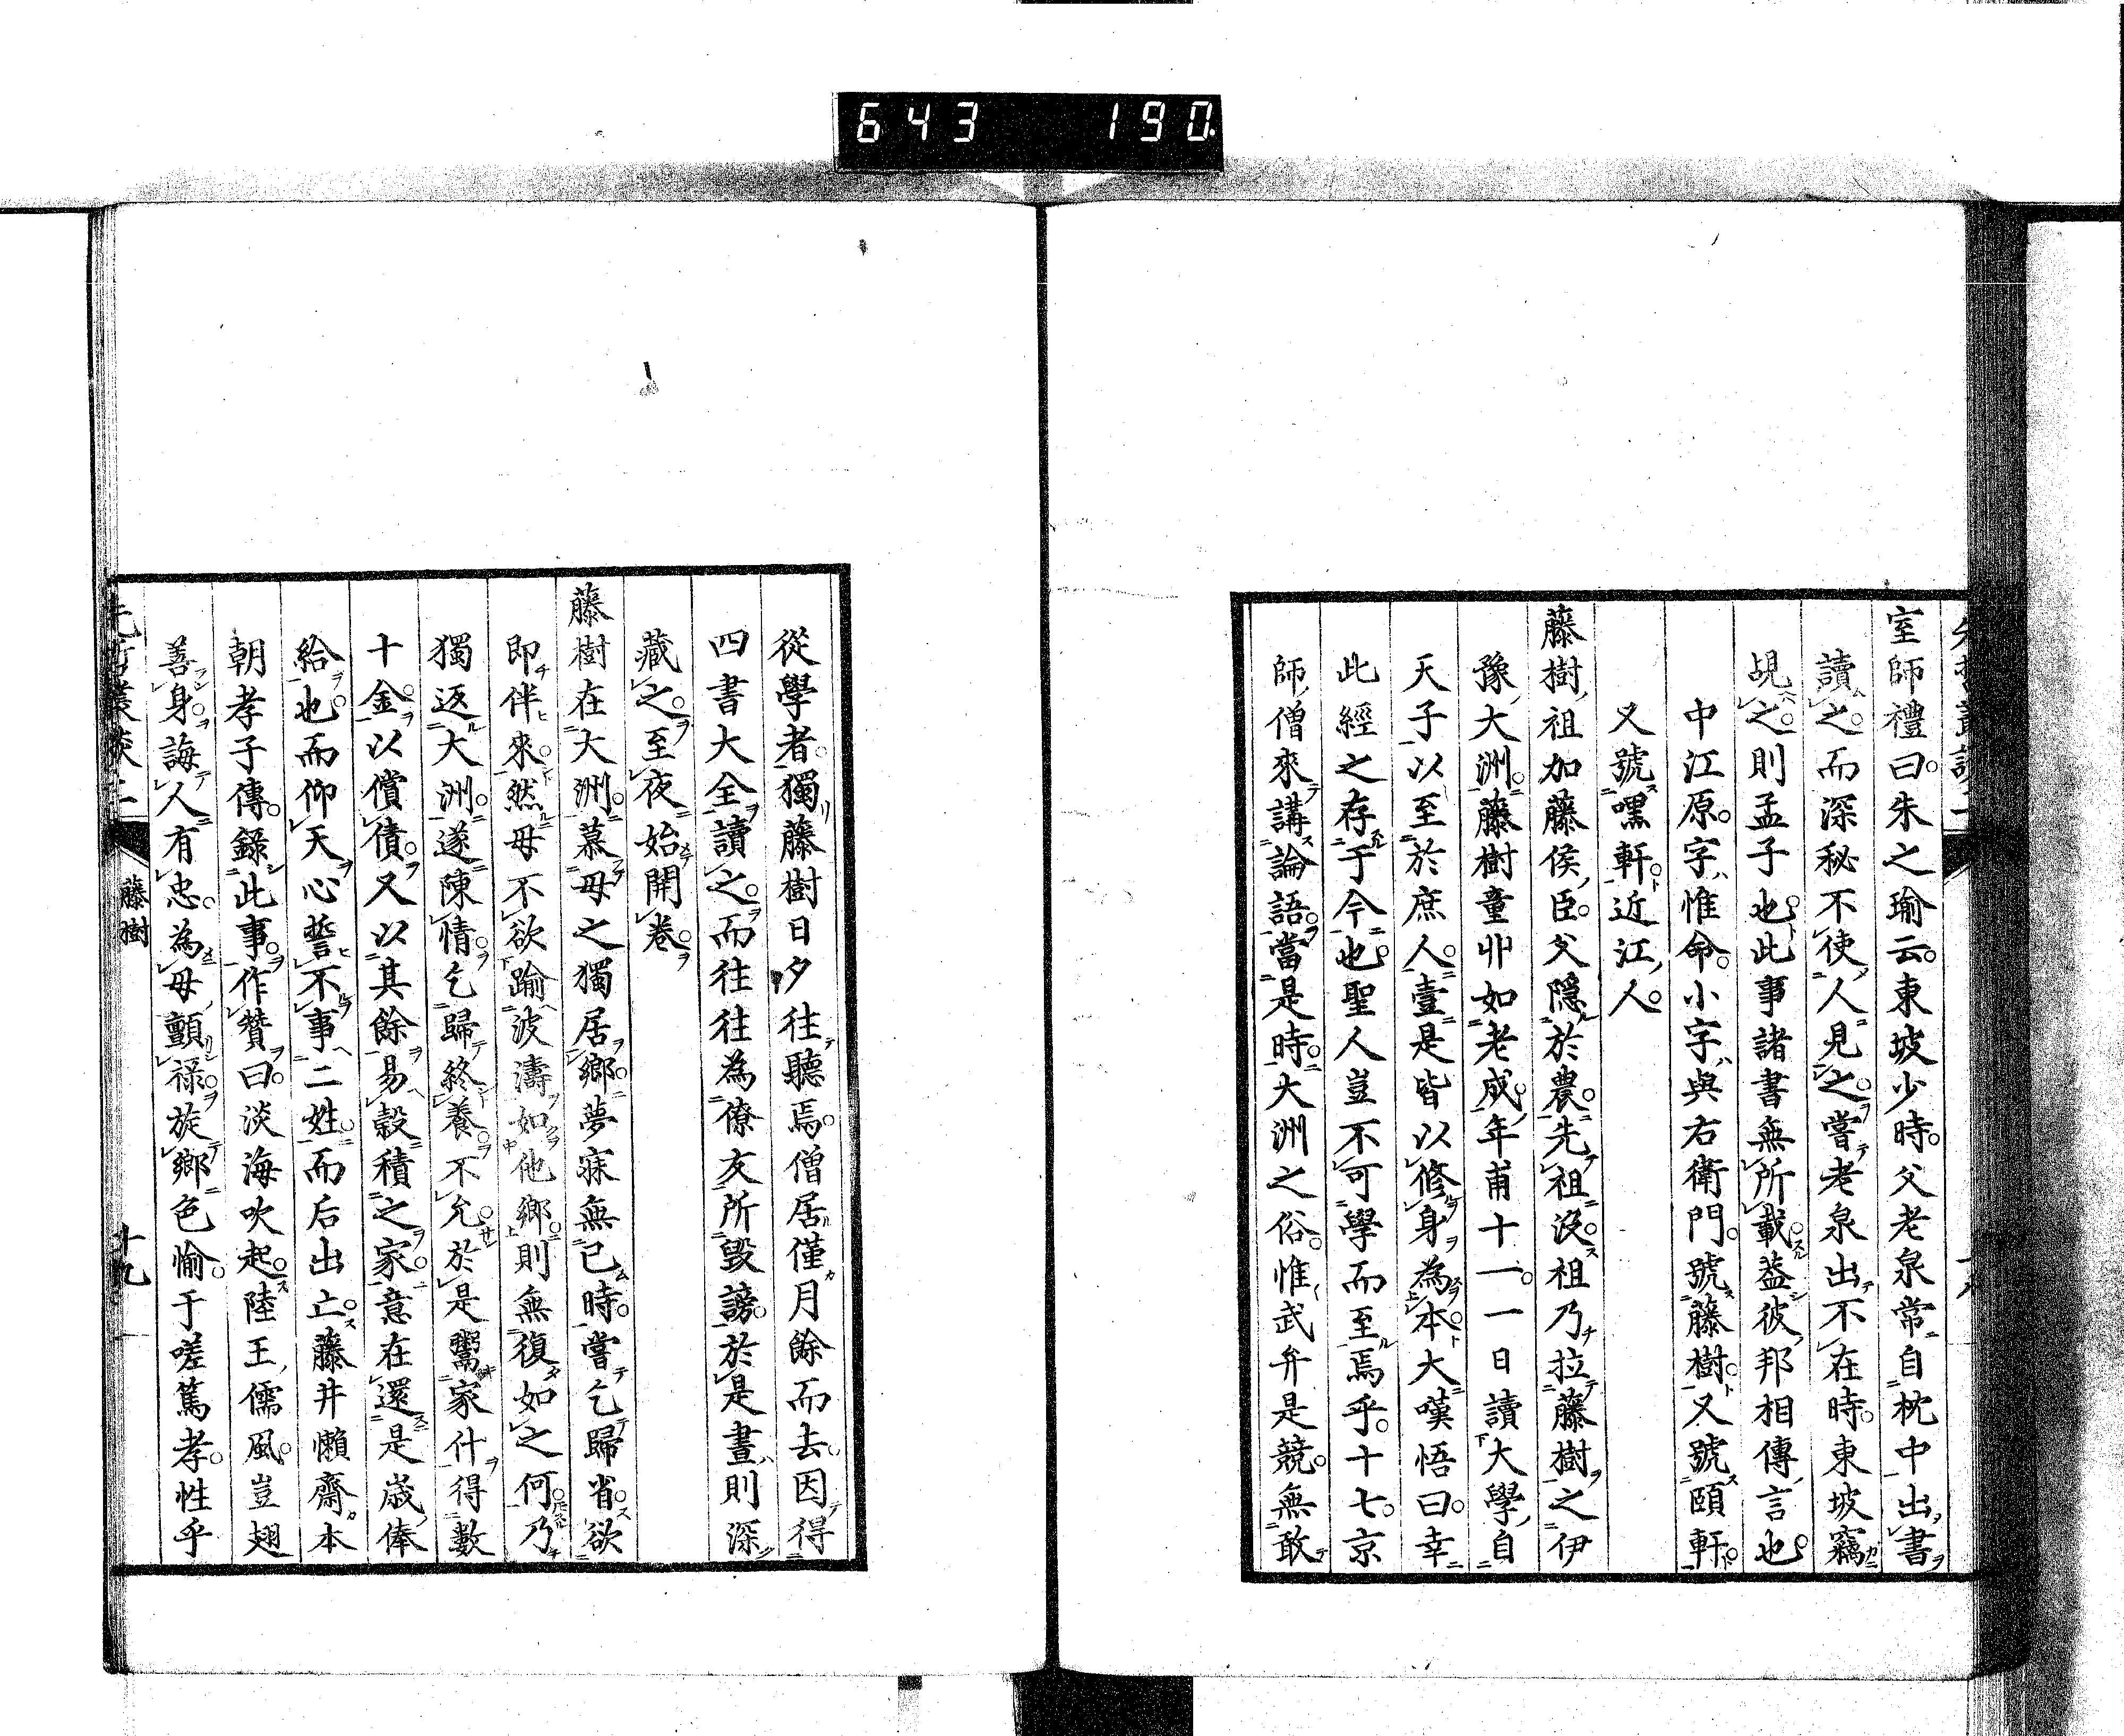 643 190
室師禮曰朱之瑜云東坡少時父老泉常自枕中出書
讀之而深秘不使人見之嘗老泉出不在時東坡竊
覘之則孟子也此事諸書無所載蓋彼邦相傳言也
中江原字惟命小字與右衛門號藤樹又號頤軒
又號嘿軒近江人
藤樹祖加藤侯臣父隱於農先祖沒祖乃拉藤樹之伊
豫大洲藤樹童丱如老成年甫十一一日讀大學自
天子以至於庶人壹是皆以修身為本大嘆悟曰幸
此經之存于今也聖人豈不可學而至焉乎十七京
師僧來講論語當是時大洲之俗惟武弁是競無敢
從學者獨藤樹日夕往聽焉僧居僅月餘而去因得
四書大全讀之而往往為僚友所毀謗於是晝則深
藏之至夜始開卷
藤樹在大洲慕母之獨居鄉夢寐無已時嘗乞歸省欲
即伴來然母不欲踰波濤如他鄉則無復如之何乃
獨返大洲遂陳情乞歸終養不允於是鬻家什得數
十金以償債又以其餘易穀積之家意在還是歲俸
給也而仰天心誓不事二姓而后出亡藤井懶齋本
朝孝子傳錄此事作贊曰淡海吹起陸王儒風豈翅
善身誨人有忠為母顫祿旋鄉色愉于嗟篤孝性乎
藤樹
十九